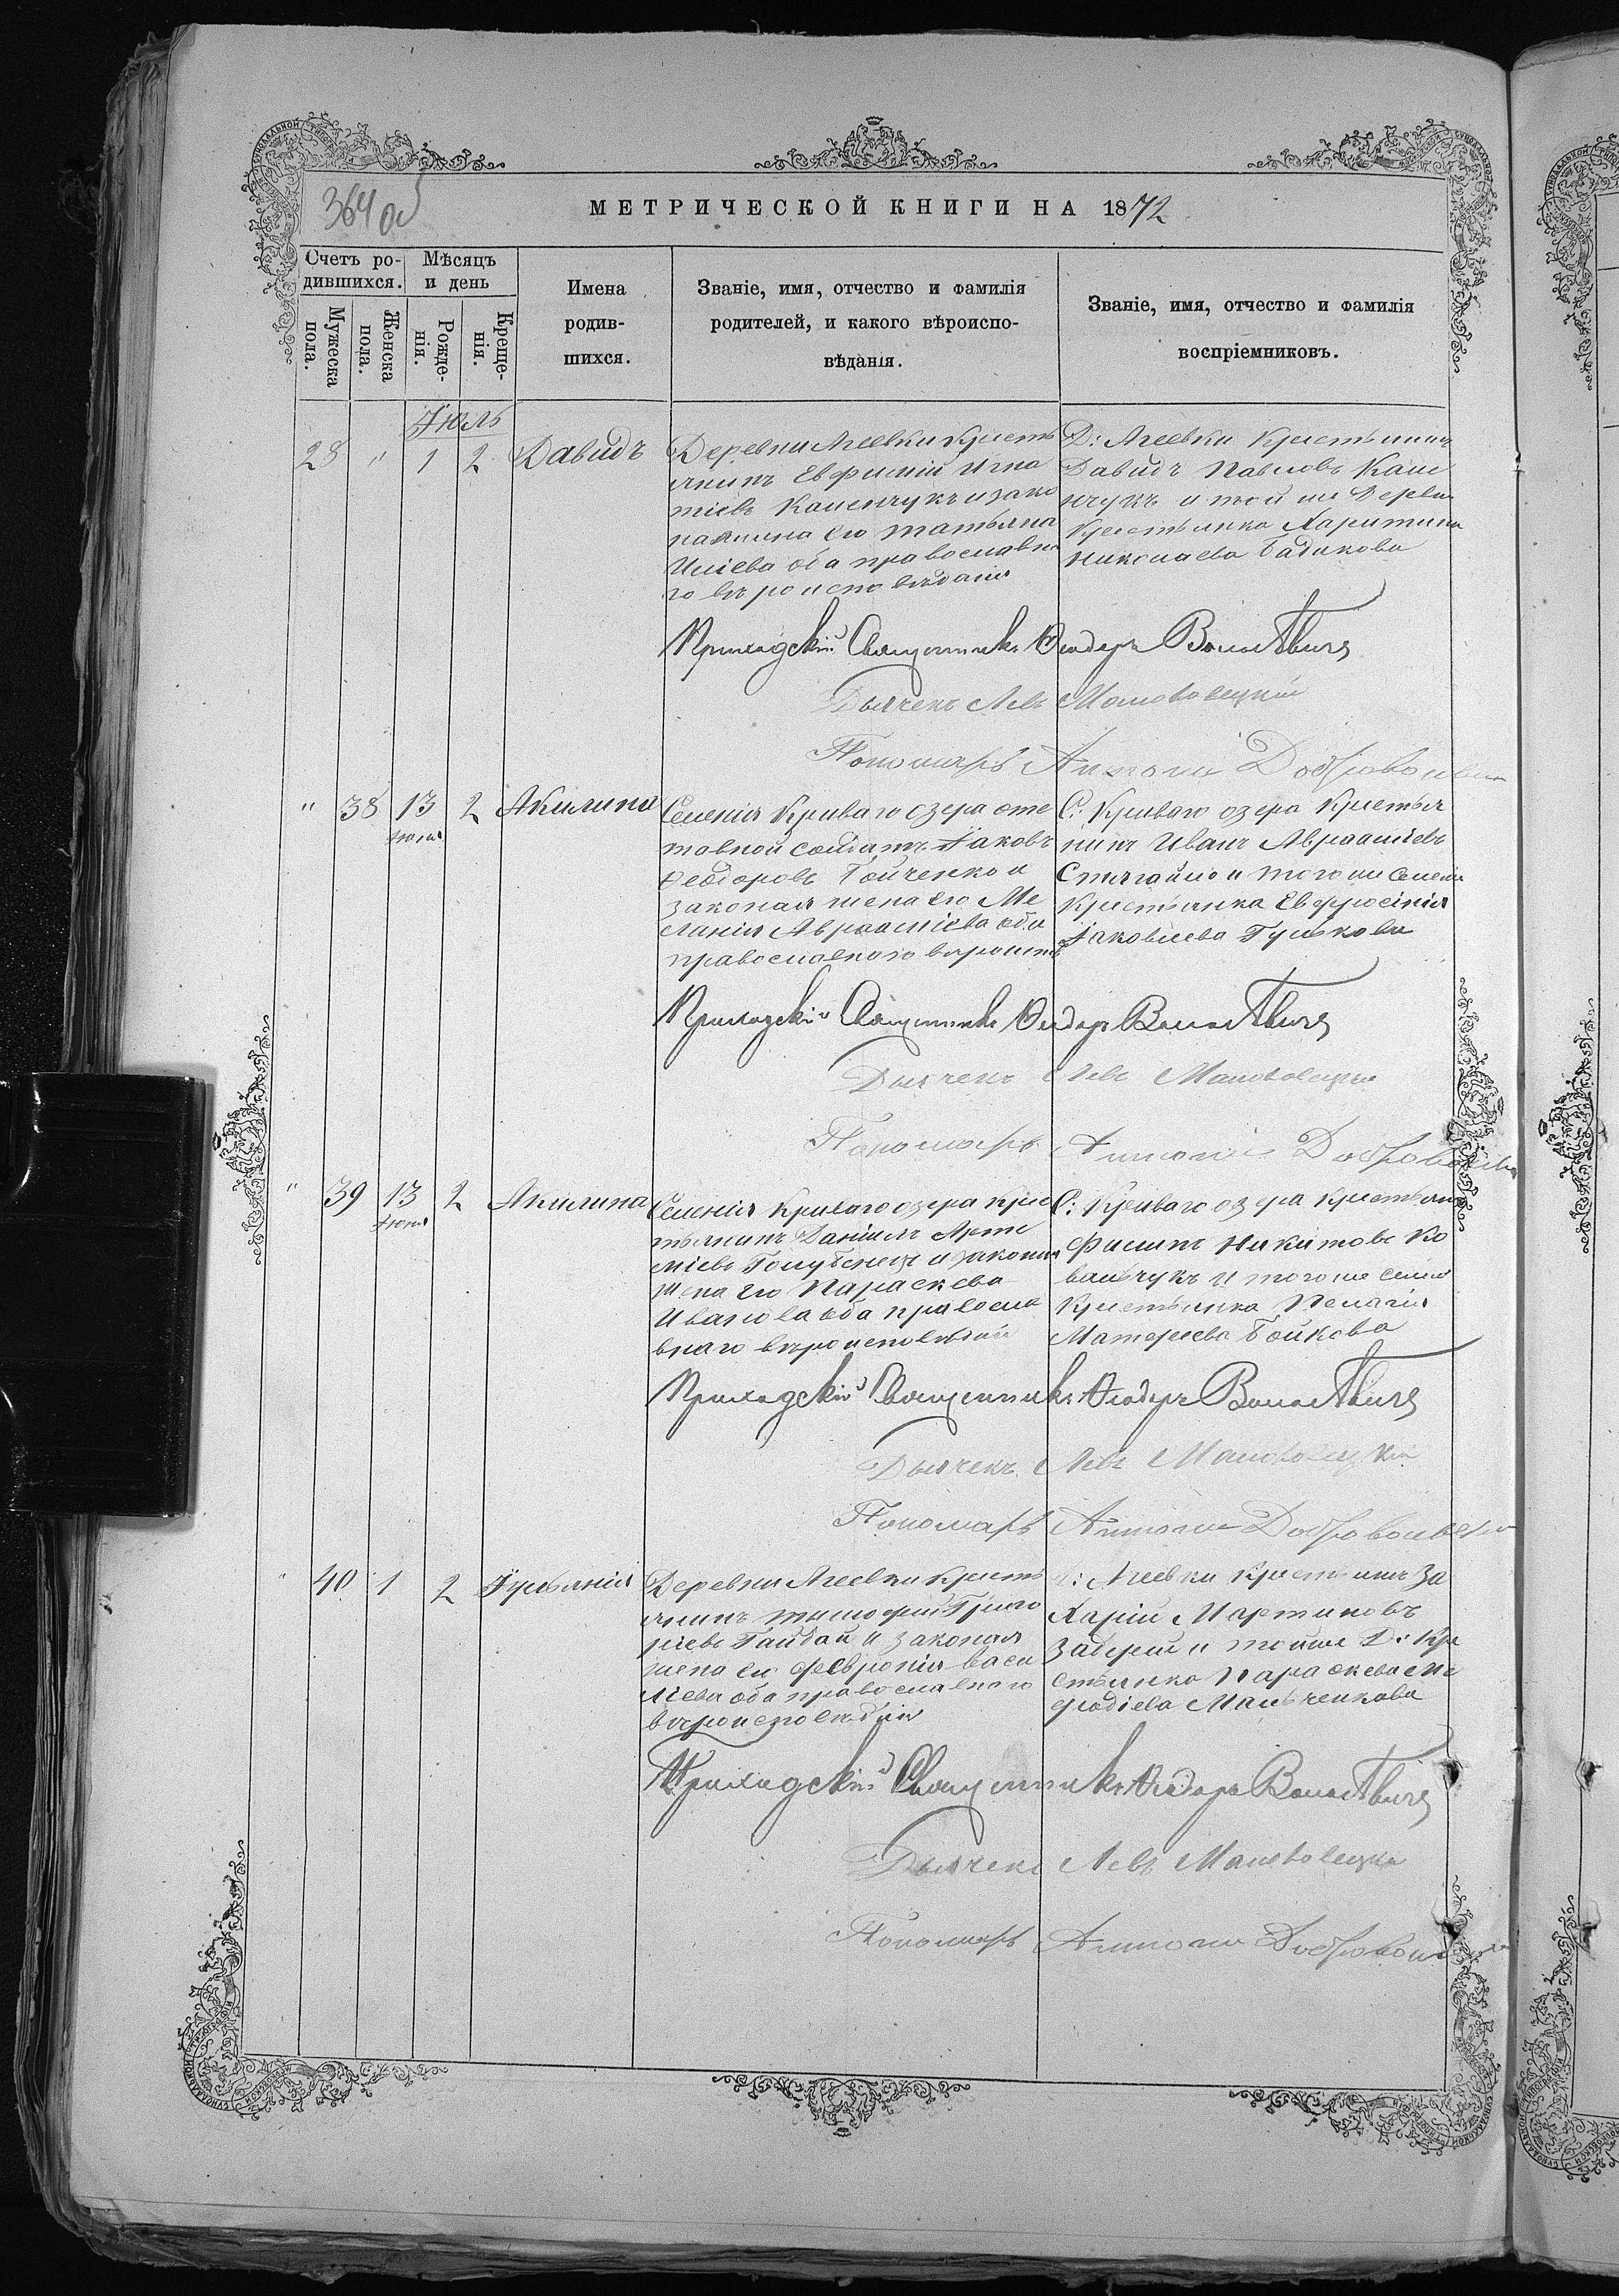 364 об
МЕТРИЧЕСКОЙ КНИГИ НА 1872
Счетъ ро-
дившихся.
Мѣсяцъ
и день
Мужеска
пола.
Женска
пола.
Рожде-
нія.
Креще-
нія.
Имена
родив-
шихся.
Званіе, имя, отчество и фамилія
родителей, и какого вѣроиспо-
вѣданія.
Званіе, имя, отчество и фамилія
воспріемниковъ.
Іюль
28 " 1 2 Давидъ
Деревни Агеевки Кресть
янинъ Евфимій Игна
тіевъ Каменчукъ и зако
его Татьяна
Иліева оба православна
го вѣроисповѣданія
Д: Агеевки Крестьянинъ
Давидъ Павловъ Каме
нчукъ и той же Деревни
Крестьянка Харитина
Николаева Бадикова
Приходскій Священникъ Ѳеодоръ
Дьячекъ Левъ Маньковецкій
Пономарь Антоній
" 38 13 2 Акилина
Іюня
Селенія Криваго озера отс
тавной солдатъ Іаковъ
Ѳеодоровъ Бойченко и
законая жена его Ме
ланія Авраамієва оба
православнаго вѣроисп
С: Криваго озера Крестья
нинъ Иванъ Авраамієвъ
и того же Селенія
Крестьянка Евфросинія
Іаковлева Гулькова
Приходскій Священникъ Ѳеодоръ
Дьячекъ Левъ Маньковецкій
Пономарь Антоній
" 39 13 2 Акилина
Іюня
Селенія Криваго озера Крес
тьянинъ Даніилъ Арте
міевъ Голубенцъ и законая
жена его Параскева
Иванова оба правосла
внаго вѣроисповѣданій
С: Криваго озера Крестьянинъ
Филипъ Никитовъ Ко
вальчукъ и того же селенія
Крестьянка Пелагія
Матѳеева Бойкова
Приходскій Священникъ Ѳеодоръ
Дьячекъ Левъ Маньковецкій
Пономарь Антоній
" 40 1 2 Іуліанія
Деревни Агеевки Кресть
янинъ Тимофей Григо
ріевъ Гайдай и законая
жена его Февронія Васи
ліева оба православнаго
вѣроисповѣданія
Д: Агеевки Крестьянинъ За
харій Мартиновъ
и той же Д: Кре
стьянка Параскева Ме
фодіева Мальченкова
Приходскій Священникъ Ѳеодоръ
Дьячекъ Левъ Маньковецкій
Пономарь Антоній